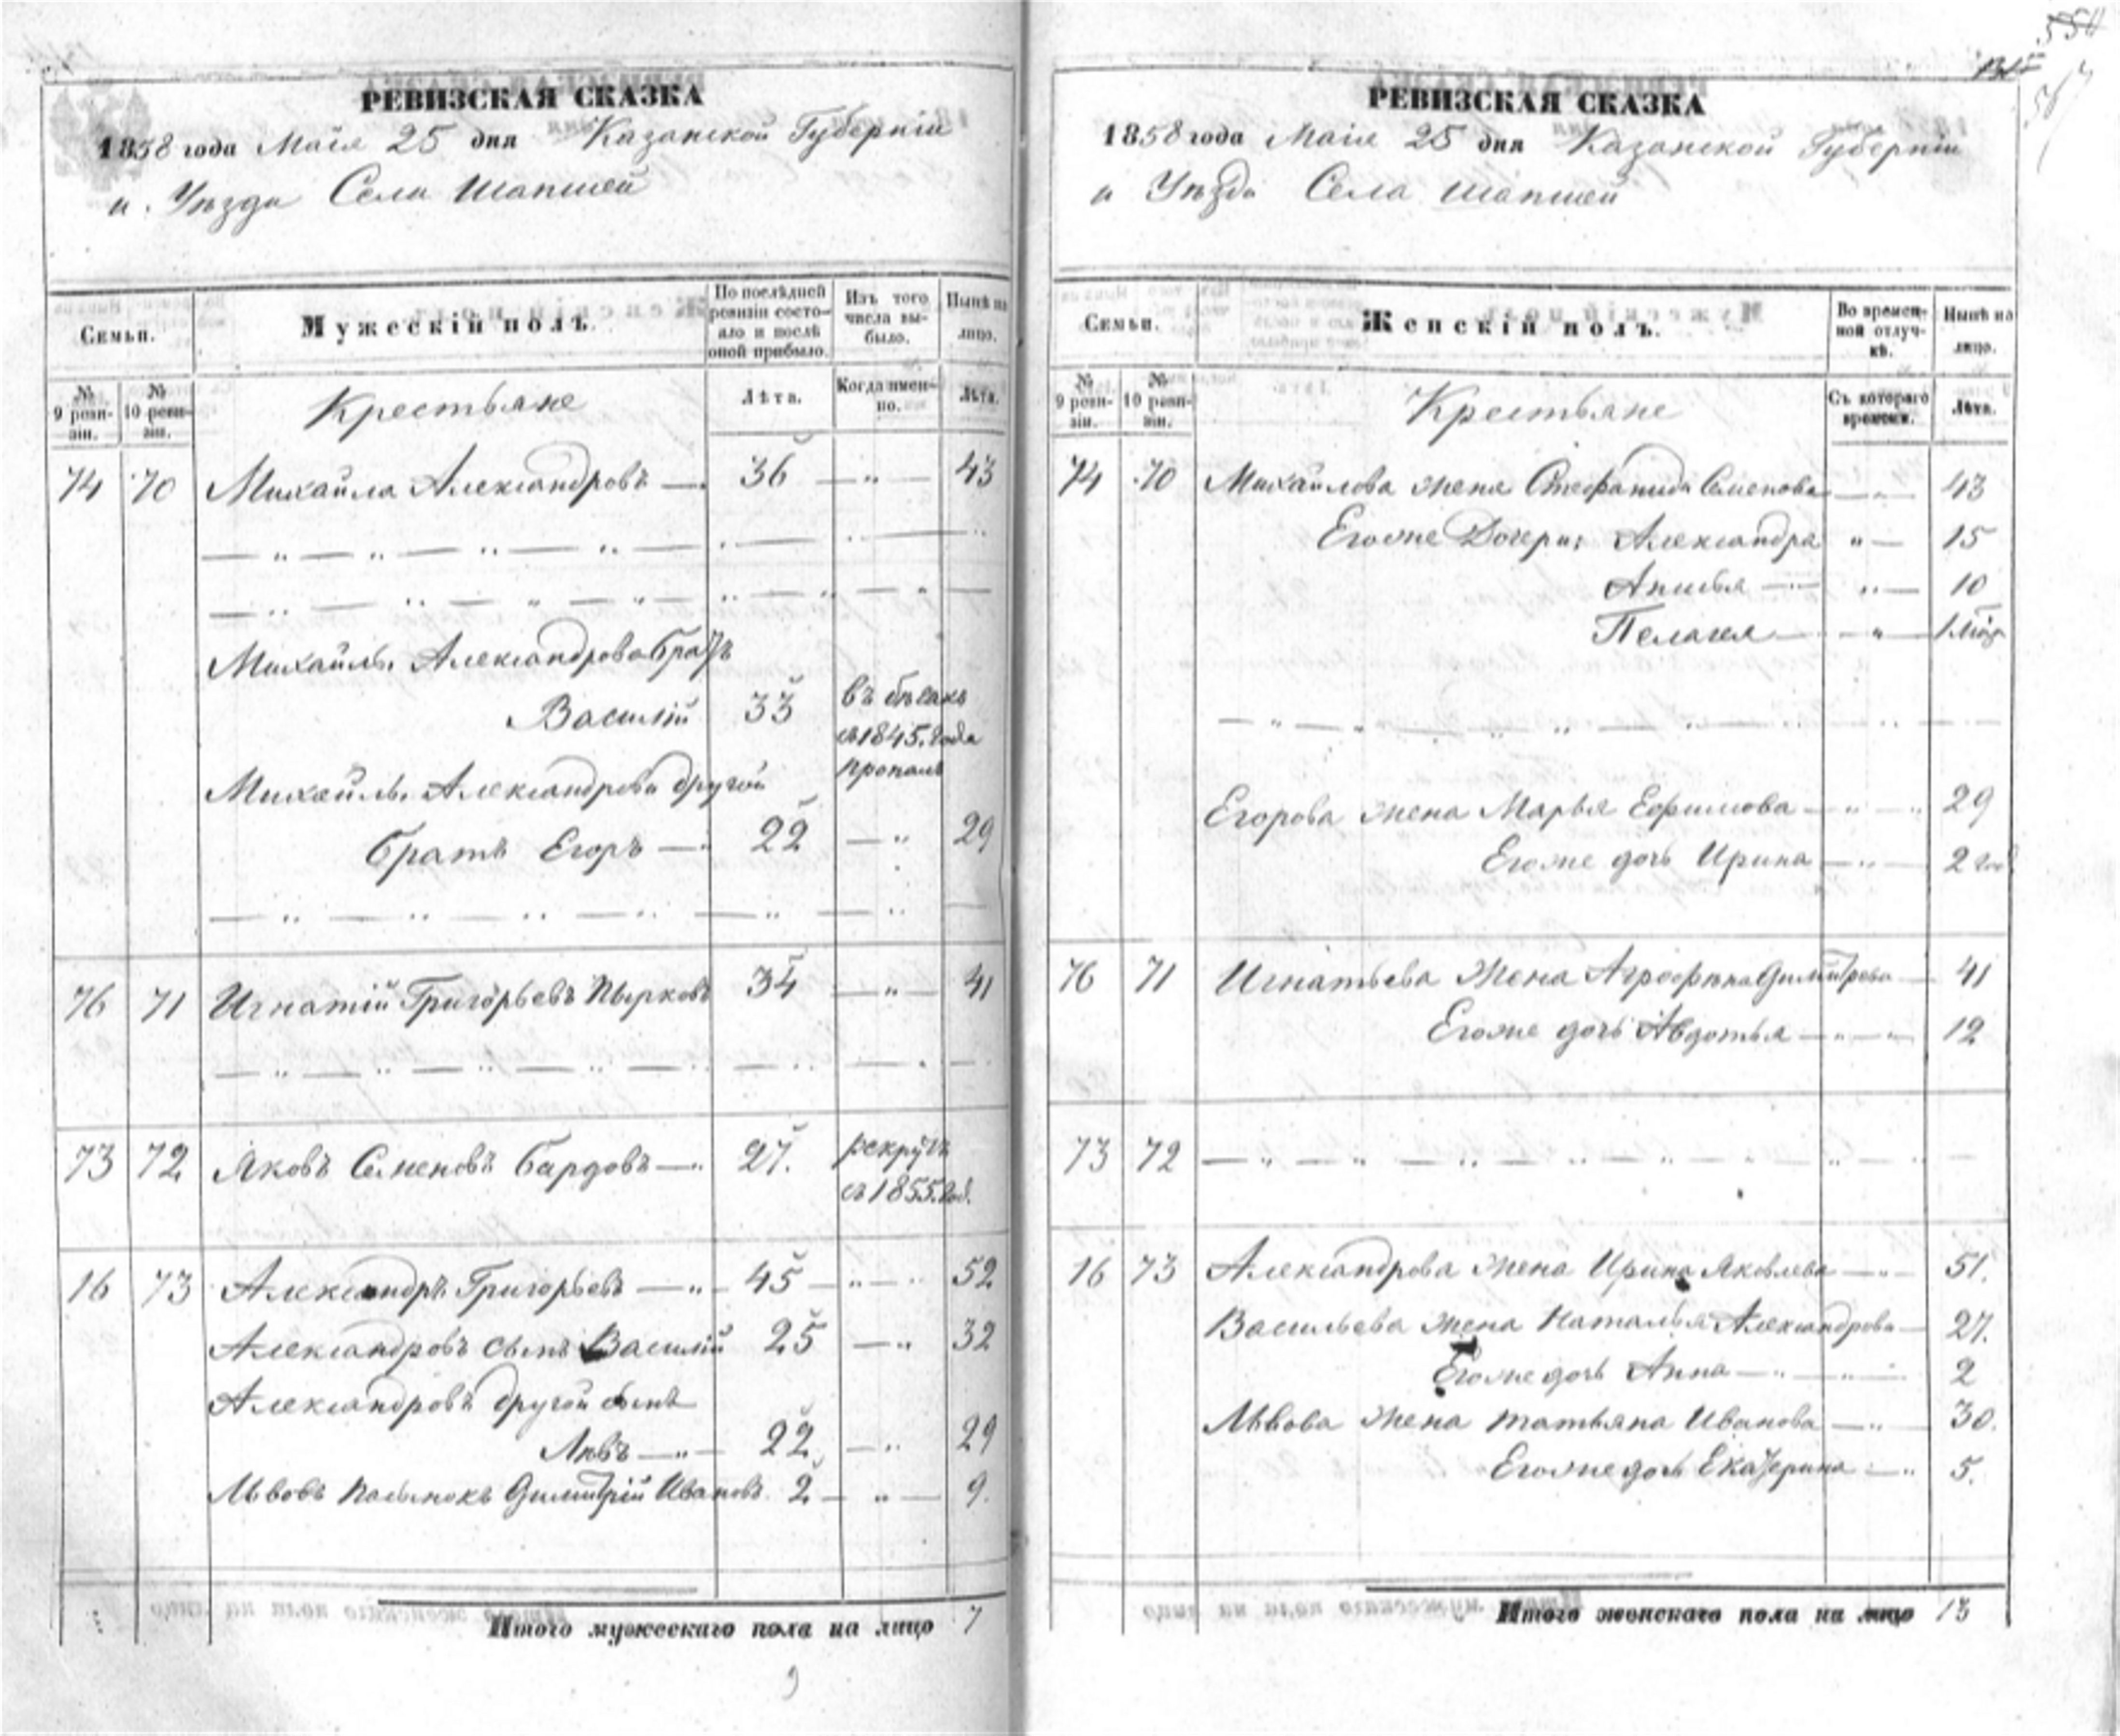 РЕВИЗСКАЯ СКАЗКА
1858 года Маія 25 дня Казанской Губерніи
и Уѣзда Села Шапшей
Семьи.
Мужескій полъ.
По послѣдней ревизіи состояло и послѣ оной прибыло.
Изъ того числа выбыло.
Нынѣ на лицо.
№ 9 ревизіи.
№ 10 ревизіи.
Крестьяне
Лѣта.
Когда именно.
Лѣта.
74 70 Михайла Александровъ — 36 — " — 43
Михайлы Александрова братъ
Василій 33 въ бѣгахъ
съ 1845. года
пропалъ
Михайлы Александрова другой
братъ Егоръ — 22 — " 29
76 71 Игнатій Григорьевъ Пырковъ 34 — " — 41
73 72 Яковъ Семеновъ Бардовъ — " 27. рекрутъ
съ 1855. год.
16 73 Александръ Григорьевъ — " — 45 — " — 52
Александровъ сынъ Василій 25 — " 32
Александровъ другой сынъ
Левъ — " — 22 — " 29
Львовъ пасынокъ Димитрій Ивановъ. 2 — " — 9.
Итого мужескаго пола на лицо 7
9
РЕВИЗСКАЯ СКАЗКА
1858 года Маія 25 дня Казанской Губерніи
и Уѣзда Села Шапшей
Семьи.
Женскій полъ.
Во временной отлучкѣ.
Нынѣ на лицо.
№ 9 ревизіи.
№ 10 ревизіи.
Крестьяне
Съ котораго времени.
Лѣта.
74 70 Михайлова жена Стефанида Семенова — " — 43
Егоже дочери: Александра " — 15
Анисья — " — 10
Пелагея — " —
Егорова жена Марья Ефимова — " — 29
Егоже дочь Ирина — " — 2 год
76 71 Игнатьева жена Агрофѣна Димитрева — 41
Егоже дочь Авдотья — " — 12
73 72
16 73 Александрова жена Ирина Яковлева — " — 51.
Васильева жена Наталья Александрова — 27.
Егоже дочь Анна — " — 2
Львова жена Татьяна Иванова — " — 30.
Егоже дочь Екатерина — " 5.
Итого женскаго пола на лицо 13